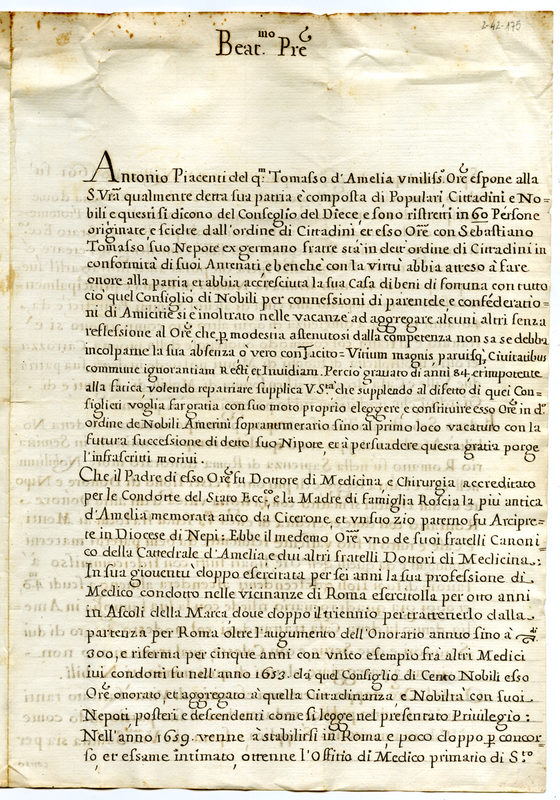 2-42-175
Beat.mo Pre
Antonio Piacenti del q.m Tomasso d'Amelia vmiliss. Ore espone alla
S. Vrà qualmente detta sua patria è composta di Populari, Cittadini e No=
bili e questi si dicono del Conseglio del Diece, e sono ristretti in 60 Persone
originate, e scielte dall'ordine di Cittadini, et esso Ore con Sebastiano
Tomasso suo Nepote ex germano fratre stà in dett'ordine di Cittadini in
conformità di suoi Antenati, e benche con la virtù abbia atteso à fare
onore alla patria, et abbia accresciuta la sua Casa di beni di fortuna con tutto
ciò quel Consiglio di Nobili per connessioni di parentele, e confederatio=
ni di Amicitie si è inoltrato nelle vacanze ad aggregare alcuni altri senza
reflessione al Ore che p modestia astenutosi dalla competenza non sa se debba
incolparne la sua absenza ò vero con Tacito = Vitium magnis paruisq; Ciuitatibus
commune ignorantiam Recti et Inuidiam. Percio grauato di anni 84, et impotente
alla fatica volendo repatriare supplica V. S.tà che supplendo al difetto di quei Con=
siglieri voglia far gratia con suo moto proprio eleggere, e constituire esso Ore in d.o
ordine de Nobili Amerini sopranumerario sino al primo loco vacaturo con la
futura successione di detto suo Nipote, et à persuadere questa gratia porge
l'infrascritti motiui.
Che il Padre di esso Ore fu Dottore di Medicina, e Chirurgia accreditato
per le Condotte del Stato Ecc.co, e la Madre di famiglia Roscia la più antica
d'Amelia memorata anco da Cicerone, et vn suo zio paterno fu Arcipre=
te in Diocese di Nepi: Ebbe il medemo Ore vno de suoi fratelli Canoni=
co della Cattedrale d'Amelia e dui altri fratelli Dottori di Medicina.:
In sua giouentù doppo esercitata per sei anni la sua professione di
Medico condotto nelle vicinanze di Roma esercitolla per otto anni
in Ascoli della Marca, doue doppo il triennio per trattenerlo dalla
partenza per Roma oltre l'augumento dell'Onorario annuo sino à
300, e riferma per cinque anni con vnico esempio frà altri Medici
iui condotti fu nell'anno 1653. dà quel Consiglio di Cento Nobili esso
Ore onorato, et aggregato à quella Cittadinanza, e Nobiltà con suoi
Nepoti posteri e descendenti come si legge nel presentato Priuilegio:
Nell'anno 1659. venne à stabilirsi in Roma, e poco doppo p concor
so, et essame intimato, ottenne l'Offitio di Medico primario di S.to